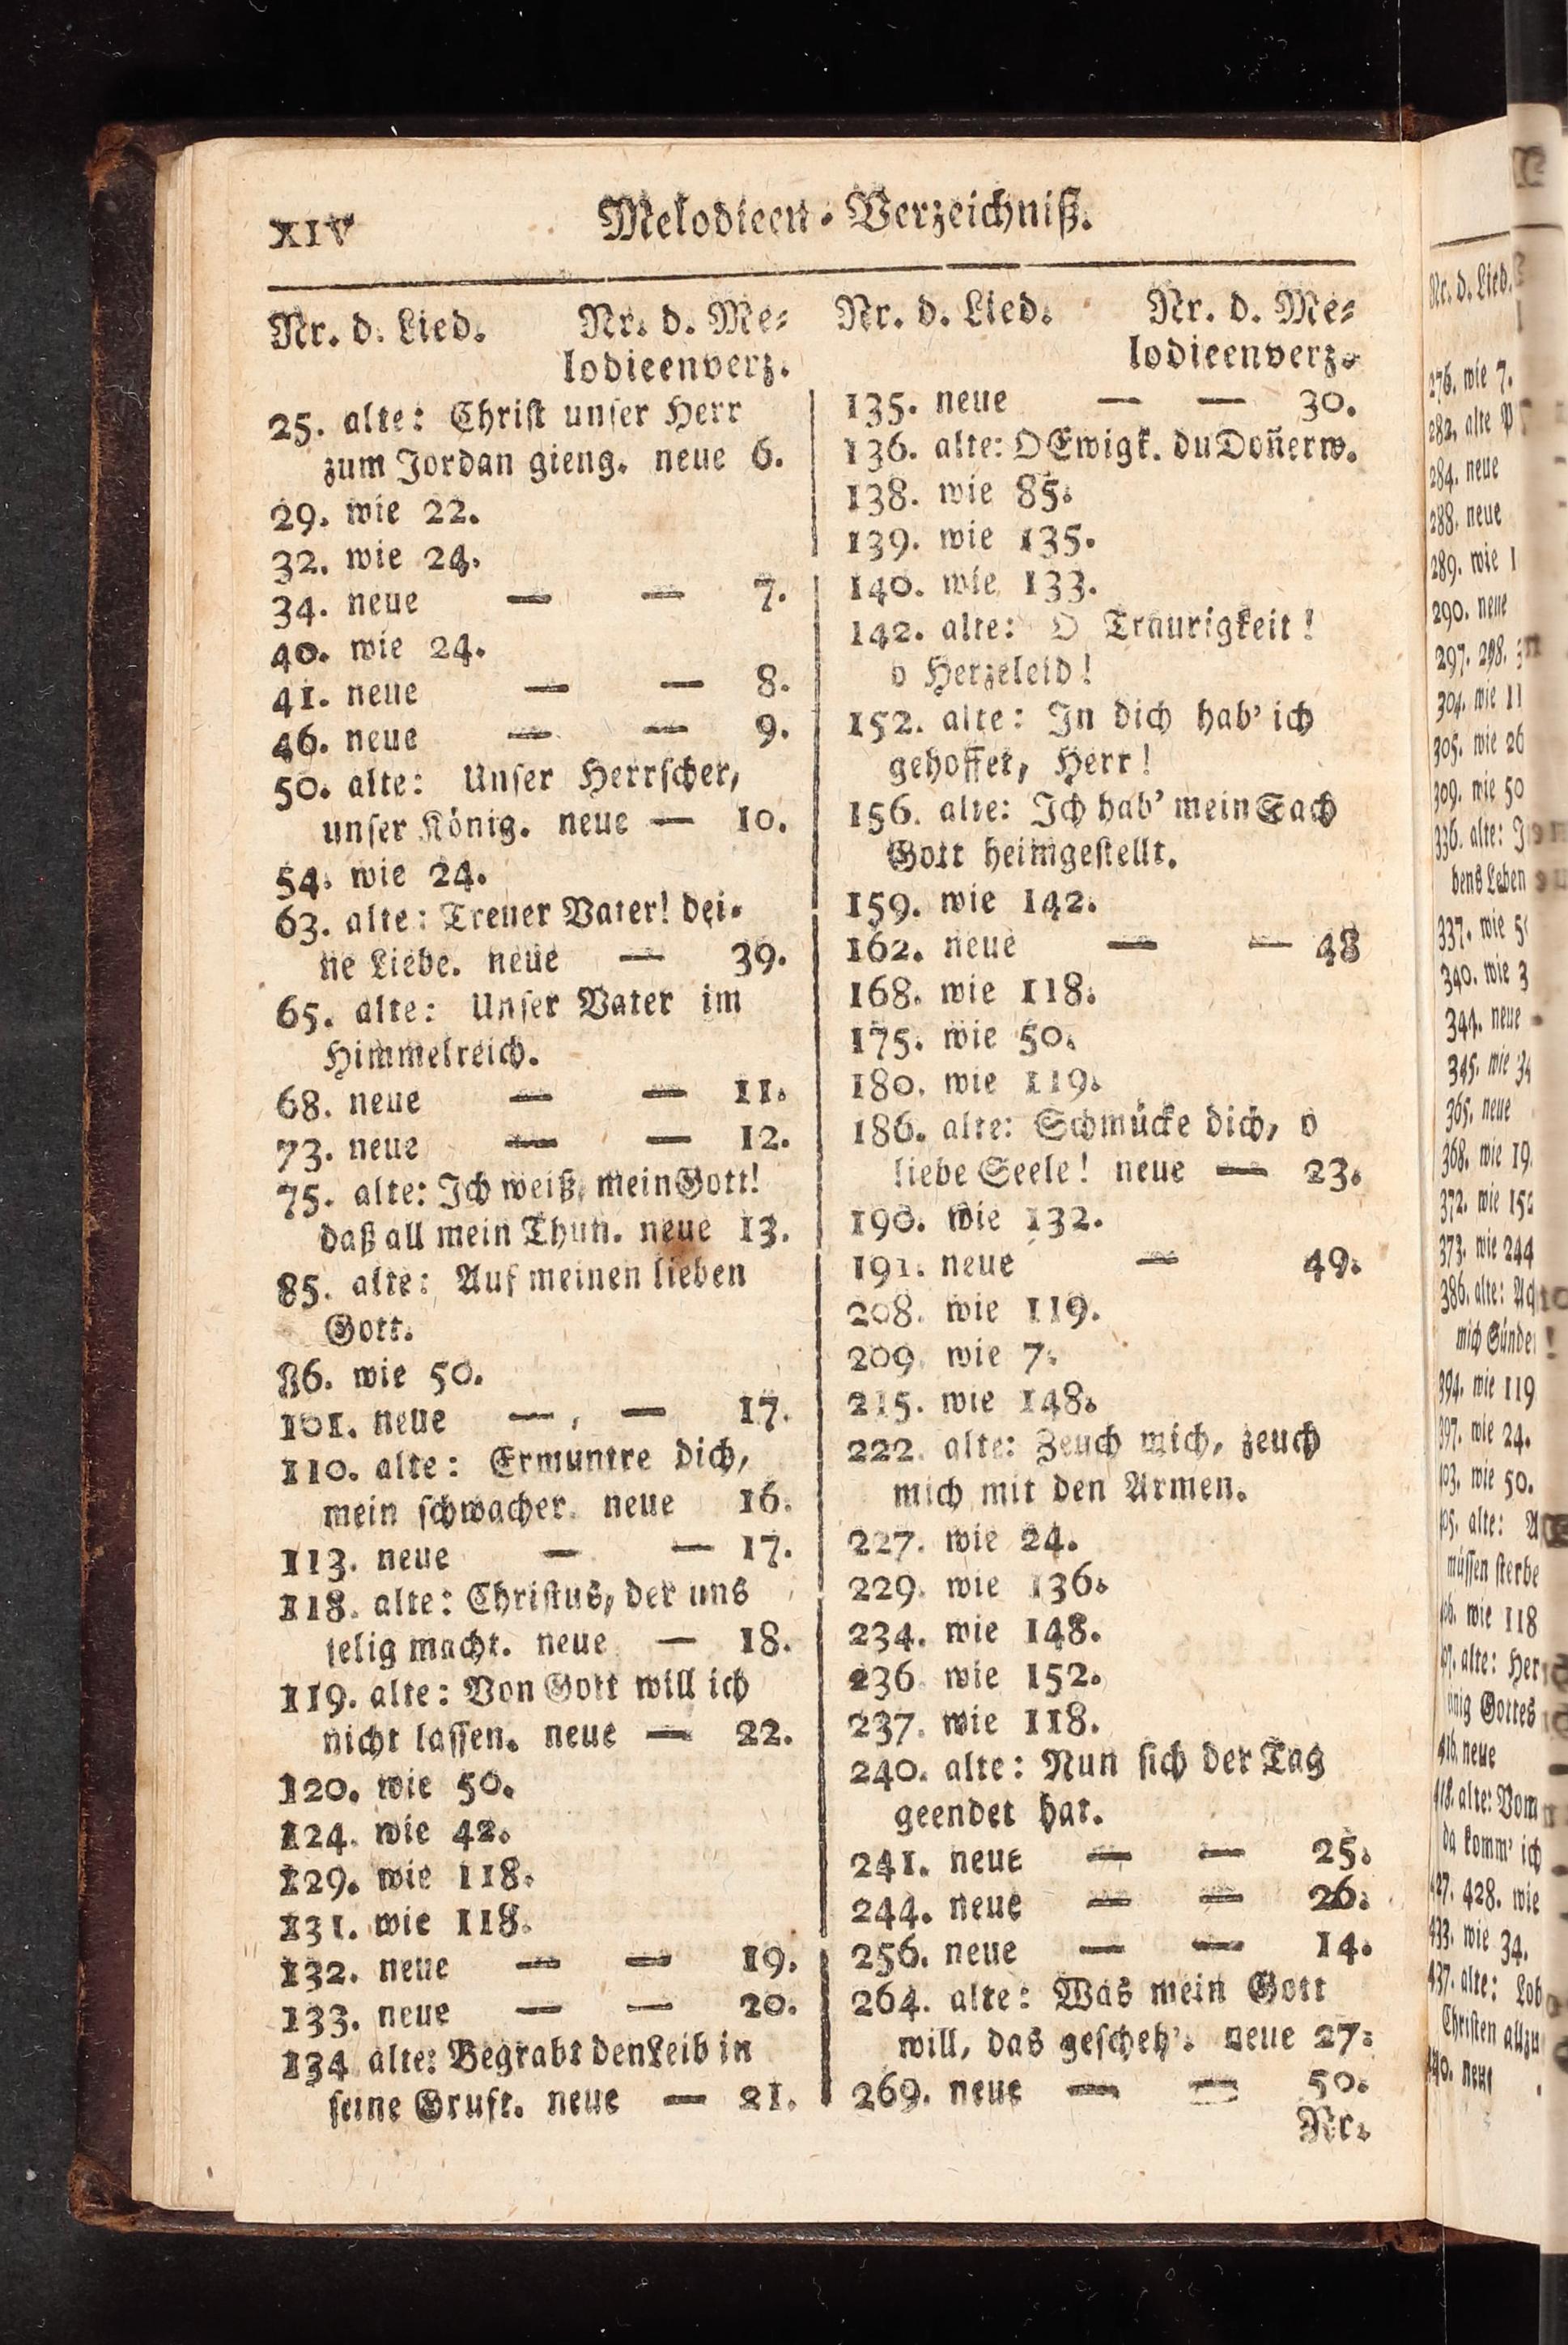 XIV
Melodieen-Verzeichniß.
Nr. d. Lied. Nr. d. Me-
lodieenverz.
25. alte: Christ unser Herr
zum Jordan gieng. neue 6.
29. wie 22.
32. wie 24.
34. neue — — 7.
40. wie 24.
41. neue — — 8.
46. neue — — 9.
50. alte: Unser Herrscher,
unser König. neue — 10.
54. wie 24.
63. alte: Treuer Vater! dei-
ne Liebe. neue — 39.
65. alte: Unser Vater im
Himmelreich.
68. neue — — 11.
73. neue — — 12.
75. alte: Ich weiß, mein Gott!
daß all mein Thun. neue 13.
85. alte: Auf meinen lieben
Gott.
86. wie 50.
101. neue — — 17.
110. alte: Ermuntre dich,
mein schwacher. neue 16.
113. neue — — 17.
118. alte: Christus, der uns
selig macht. neue — 18.
119. alte: Von Gott will ich
nicht lassen. neue — 22.
120. wie 50.
124. wie 42.
129. wie 118.
131. wie 118.
132. neue — — 19.
133. neue — — 20.
134 alte: Begrabt den Leib in
seine Gruft. neue — 21.
Nr. d. Lied. Nr. d. Me-
lodieenverz.
135. neue — — 30.
136. alte: O Ewigk. du Don̄erw.
138. wie 85.
139. wie 135.
140. wie 133.
142. alte: O Traurigkeit!
o Herzeleid!
152. alte: In dich hab' ich
gehoffet, Herr!
156. alte: Ich hab' mein Sach
Gott heimgestellt.
159. wie 142.
162. neue — — 48
168. wie 118.
175. wie 50.
180. wie 119.
186. alte: Schmücke dich, o
liebe Seele! neue — 23.
190. wie 132.
191. neue — 49.
208. wie 119.
209. wie 7.
215. wie 148.
222. alte: Zeuch mich, zeuch
mich mit den Armen.
227. wie 24.
229. wie 136.
234. wie 148.
236. wie 152.
237. wie 118.
240. alte: Nun sich der Tag
geendet hat.
241. neue — — 25.
244. neue — — 26.
256. neue — — 14.
264. alte: Was mein Gott
will, das gescheh'. neue 27.
269. neue — — 50.
Nr.
Nr. d. Lied.
276. wie 7.
282. alte
284. neue
288. neue
289. wie
290. neue
297. 298.
304. wie
305. wie 26
309. wie 50
336. alte:
bens Leben
337. wie
340. wie 3
344. neue
345. wie 34
365. neue
368. wie 19
372. wie 152
373. wie 244
386. alte:
mich
394. wie 119
397. wie 24.
wie 50.
alte:
müssen sterbe
wie 118
alte:
Gottes
neue
alte: Vom
da komm' ich
428. wie
wie 34.
437. alte: Lob
Christen
neue